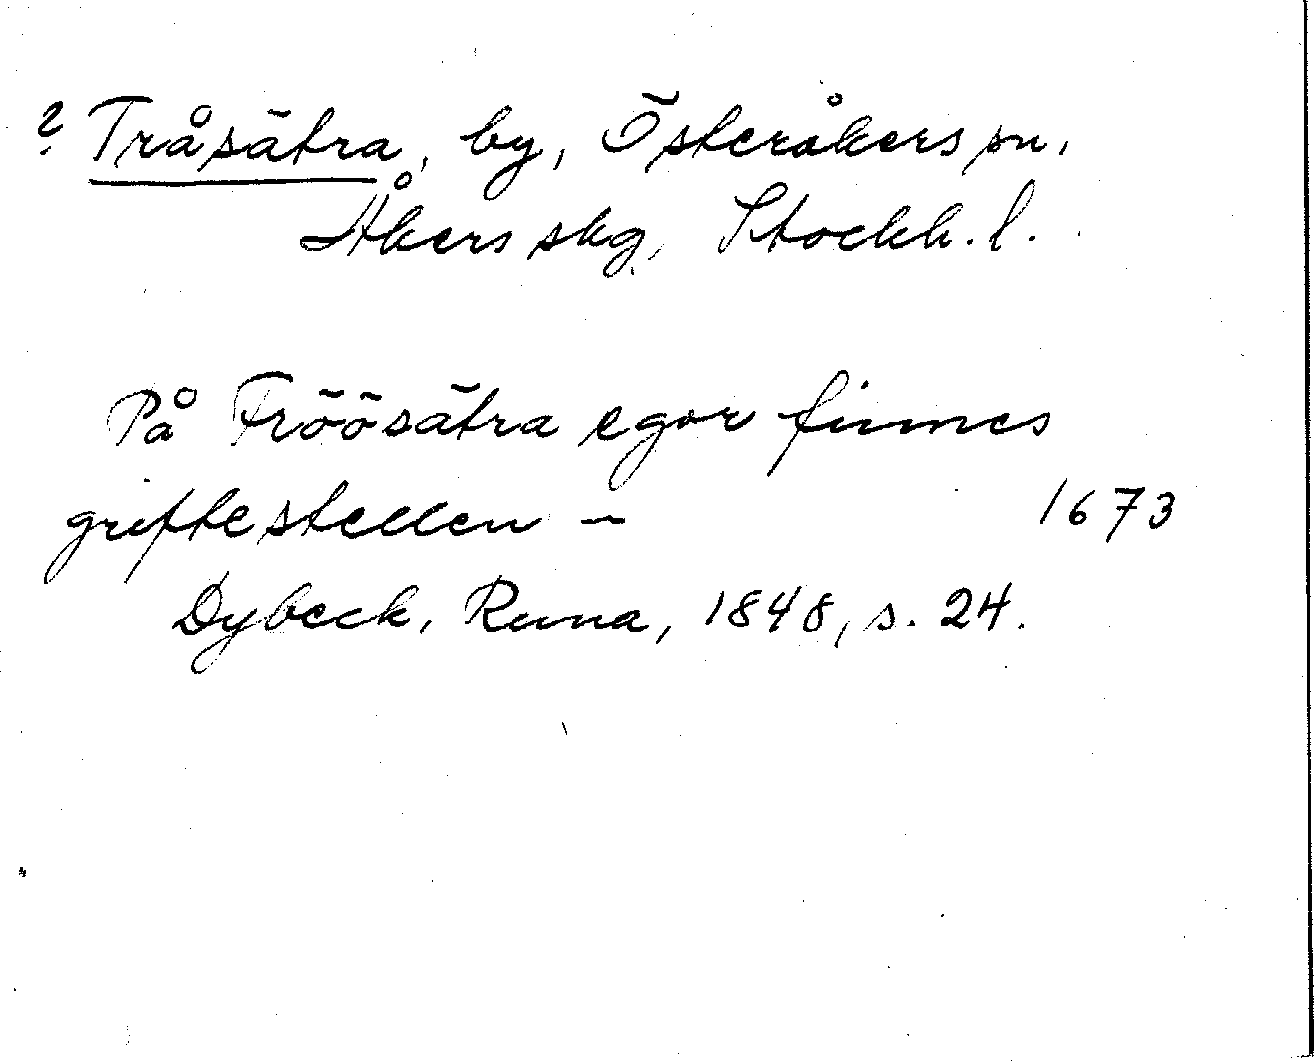 ? Tråsätra, by, Österåkers sn,
Åkers skg, Stockh. l.
På Fröösätra egor finnes
griftestellen –
1673
Dybeck, Runa, 1848, s. 24.